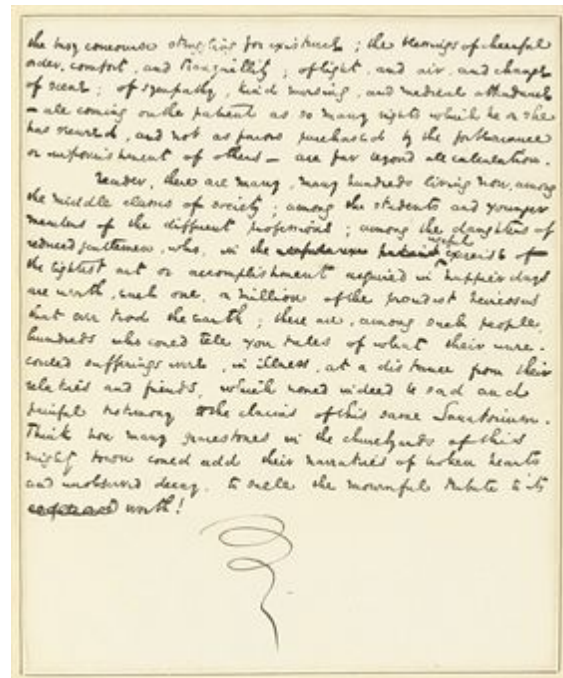 the busy concourse struggling for existence ; the blessings of cheerful
order, comfort, and tranquillity ; of light, and air, and change
of scene ; of sympathy, kind nursing, and medical attendance
— all coming on the patient as so many rights which he or she
has secured, and not as favors purchased by the forbearance
or impoverishment of others — are far beyond all calculation.
Reader, there are many, many hundreds living now, among
the middle classes of society ; among the students and younger
members of the different professions ; among the daughters of
reduced gentlemen, who, in the useful exercise of
the lightest art or accomplishment acquired in happier days
are worth, each one, a million of the proudest heiresses
that ever trod the earth ; there are, among such people,
hundreds who could tell you tales of what their unre-
corded sufferings were, in illness, at a distance from their
relatives and friends, which would indeed be sad and
painful testimony to the claims of this same Sanatorium.
Think how many gravestones in the churchyards of this
mighty town could add their narratives of broken hearts
and unobserved decay, to swell the mournful tribute to its
worth!